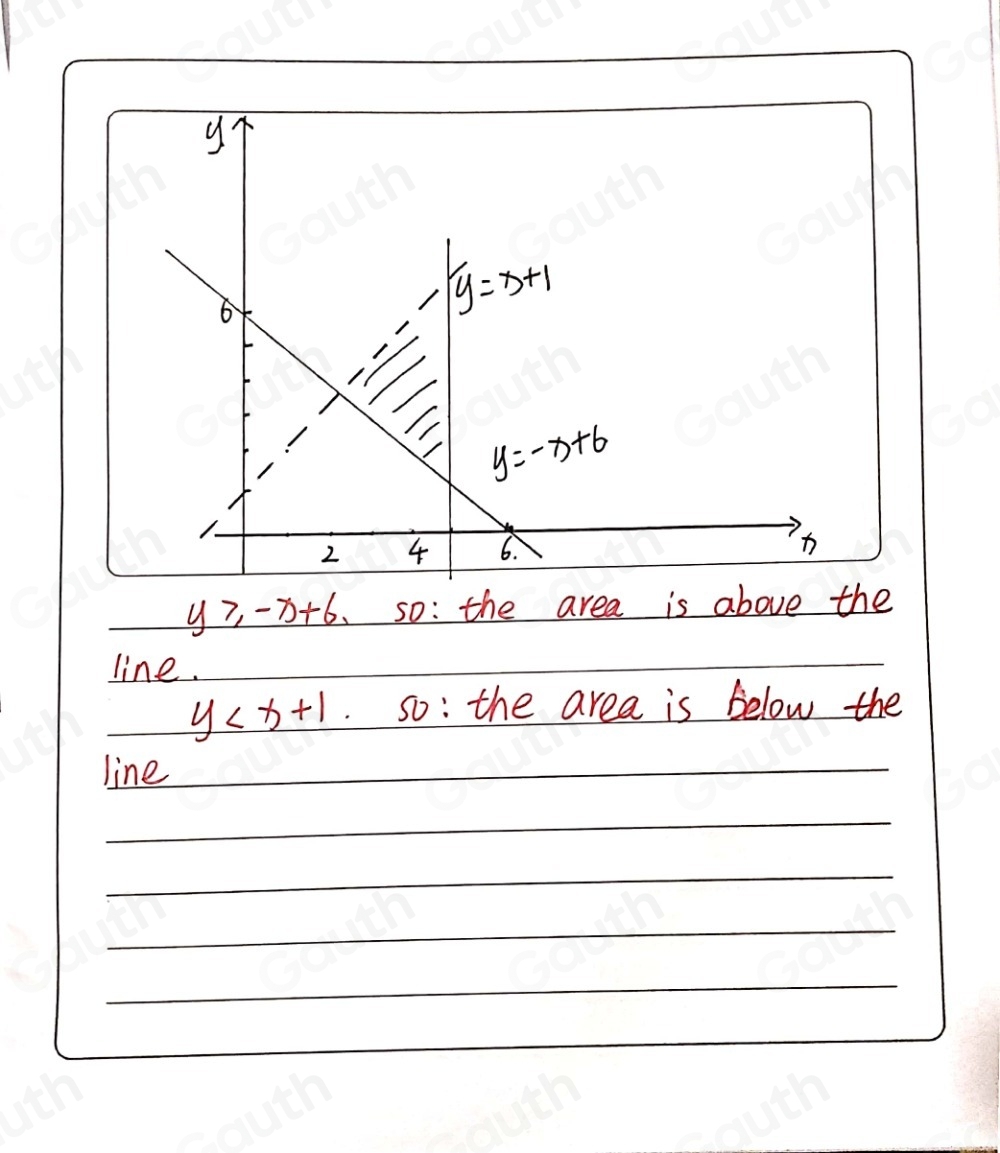 y
y=x+1
6
y=-x+6
2 4 6.
x
y≥-x+6、 so: the area is above the
line.
y<x+1. so: the area is below the
line
Gauth